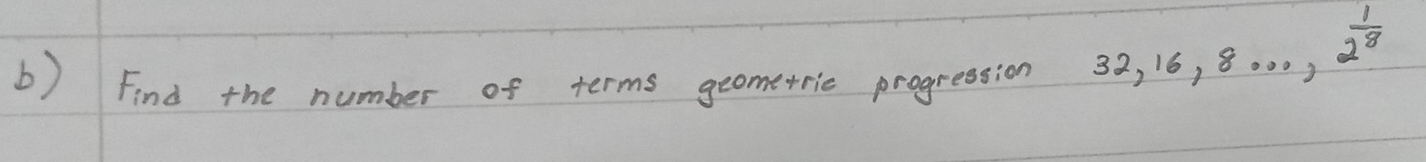 b) Find the number of terms geometric progression 32, 16, 8 ..., 2^{\frac{1}{8}}